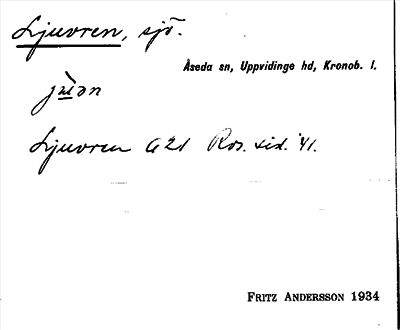 Ljuvren, sjö.
Åseda sn, Uppvidinge hd, Kronob. l.
Ljuvren G 21 Ros. sid. 41.
FRITZ ANDERSSON 1934